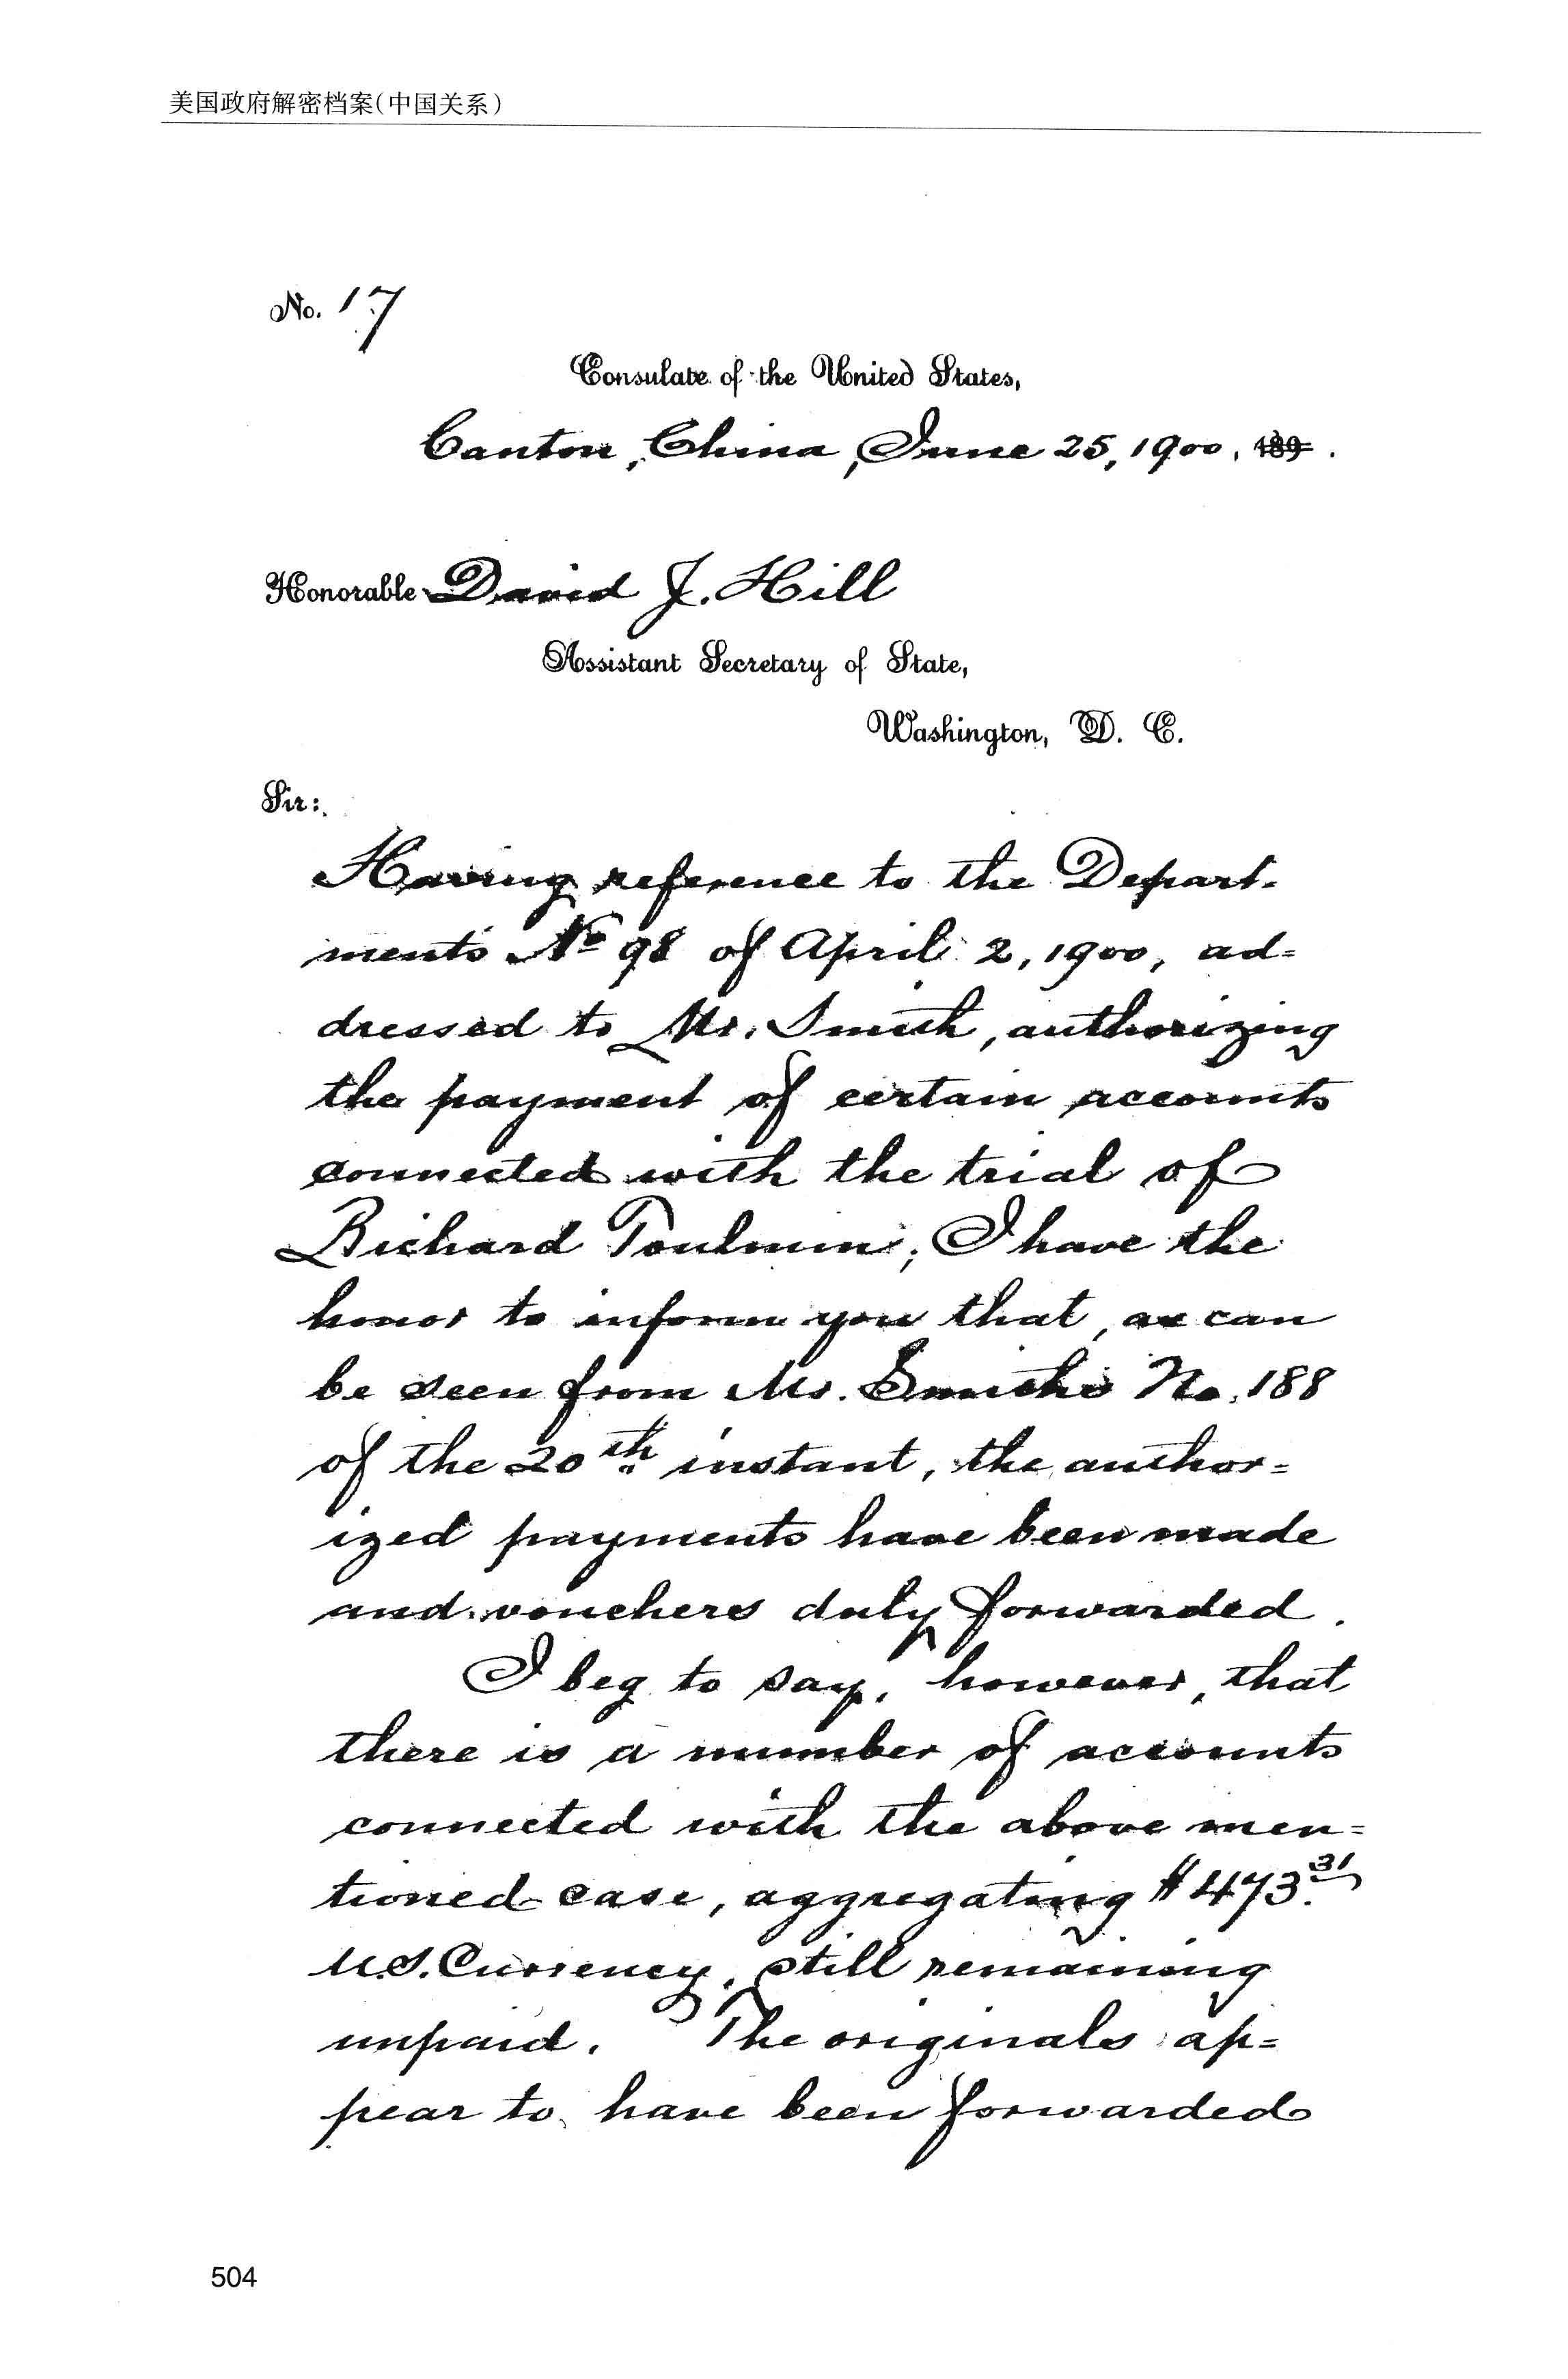 美国政府解密档案(中国关系)
No. 17
Consulate of the United States,
Canton, China, June 25, 1900, 189 .
Honorable David J. Hill
Assistant Secretary of State,
Washington, D. C.
Sir:
Having reference to the Depart-
ments No 98 of April 2, 1900, ad=
dressed to Mr. Smith, authorizing
the payment of certain accounts
connected with the trial of
Richard Toulmin; I have the
honor to inform you that, as can
be seen from Mr. Smith's No. 188
of the 20th instant, the author=
ized payments have been made
and vouchers duly forwarded.
I beg to say, however, that
there is a number of accounts
connected with the above men=
tioned case, aggregating $473.31
U.S. Currency, still remaining
unpaid. The originals ap=
pear to have been forwarded
504